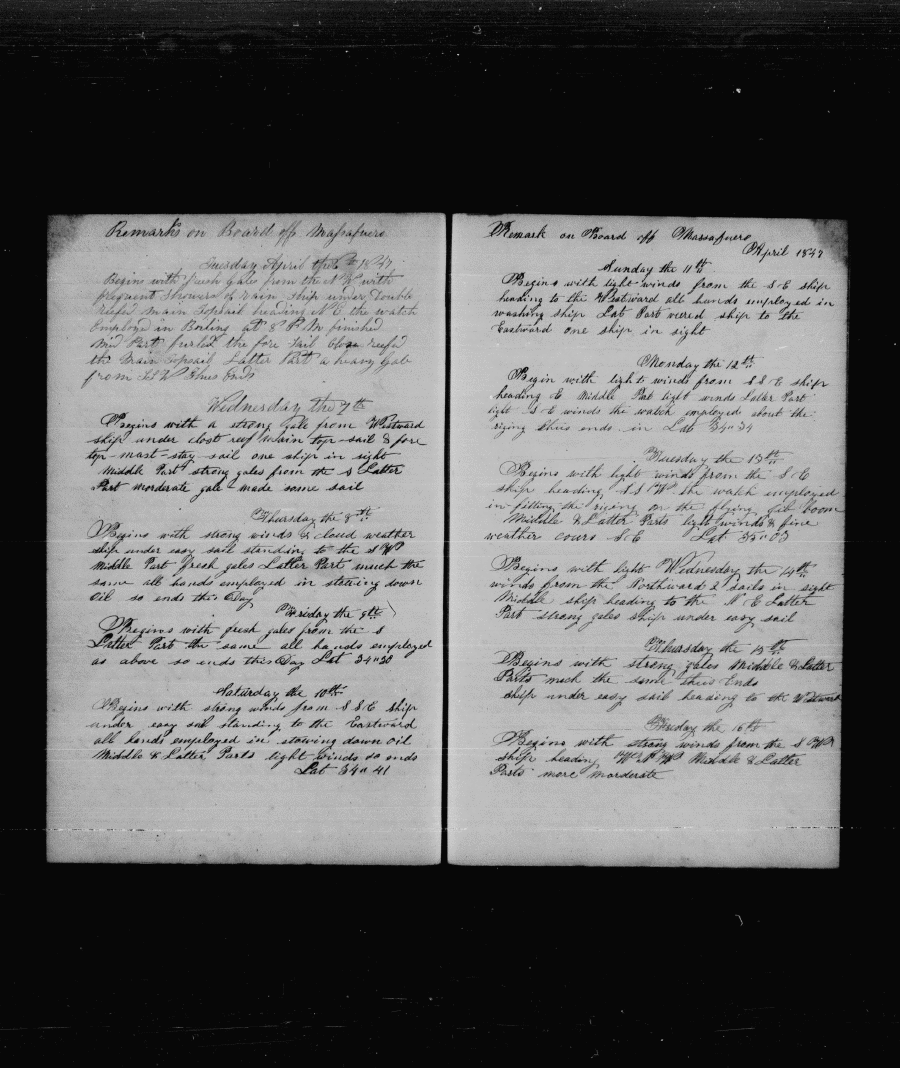 Remarks on Board off Masafuero
Tuesday April the 6th 1847
Begins with fresh gales from the N W with
frequent showers of rain ship under Double
reefed main Topsail heading N E the watch
Employd in Boiling at 8 P M finished
Mid Part furled the fore Sail Close reefd
the Main Topsail Latter Part a heavy Gale
from W thus Ends
Wednesday the 7th
Begins with a strong gale from Westward
ship under close reef main top-sail & fore
top-mast-stay-sail one ship in sight
Middle Part strong gales from the S Latter
Part morderate gale made some sail
Thursday the 8th
Begins with strong winds & cloud weather
ship under easy sail standing to the S W
Middle Part fresh gales Latter Part much the
same all hands employed in stowing down
Oil so ends this Day
Friday the 9th
Begins with fresh gales from the S
Latter Part the same all hands employed
as above so ends this Day Lat 34"20
Saturday the 10th
Begins with strong winds from S S E ship
under easy sail standing to the Eastward
all hands employed in stowing down oil
Middle & Latter Parts light winds so ends
Lat 34" 41
Remark on Board off Massafuero
April 1847
Sunday the 11th
Begins with light winds from the S E ship
heading to the Westward all hands employed in
washing ship Lat Part vered ship to the
Eastward one ship in sight
Monday the 12th
Begin with light winds from S S E ship
heading E Middle Part light winds Latter Part
light S E winds the watch employed about the
riging thus ends in Lat 34" 34
Tuesday the 13th
Begins with light winds from the S E
ship heading S S W the watch employed
in fitting the riging on the flying jib boom
Middle & Latter Parts light winds & fine
weather cours N E Lat 35" 03
Wednesday the 14th
Begins with light
winds from the Northward 2 sails in sight
Middle ship heading to the N E Latter
Part strong gales ship under easy sail
Thursday the 15th
Begins with strong gales Middle & Latter
Parts much the same thus Ends
ship under easy sail heading to the Westward
Friday the 16th
Begins with strong winds from the S W
ship heading W N W Middle & Latter
Parts more morderate